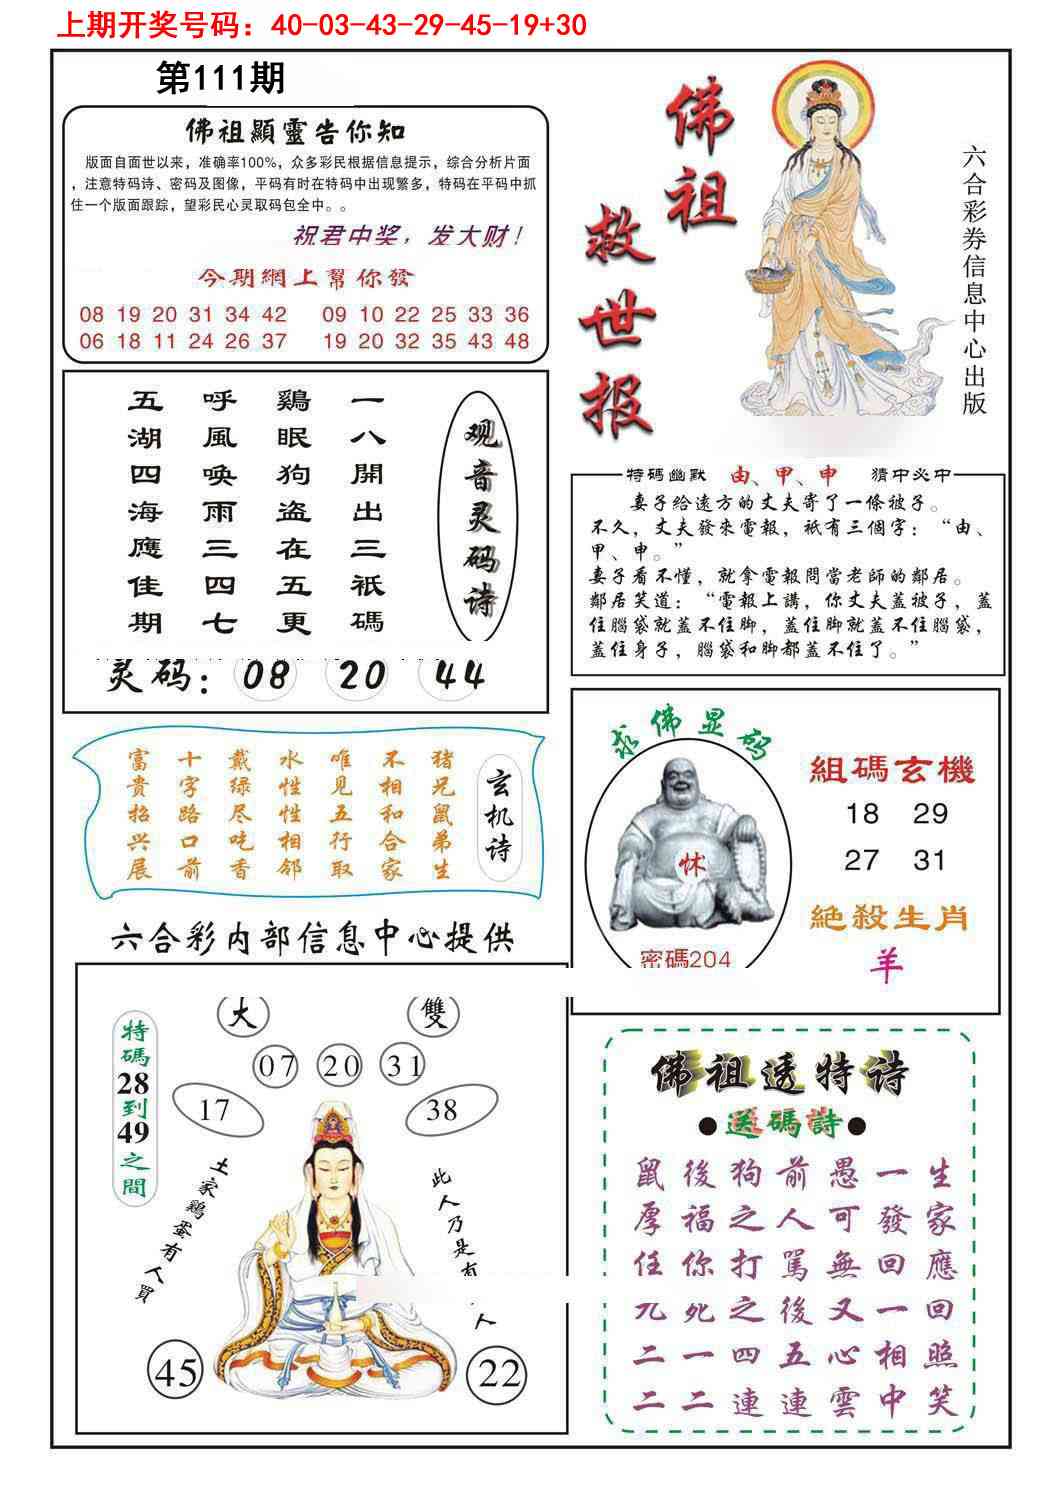 上期开奖号码：40-03-43-29-45-19+30
第111期
佛祖顯靈告你知
版面自面世以来，准确率100%，众多彩民根据信息提示，综合分析片面
，注意特码诗、密码及图像，平码有时在特码中出现繁多，特码在平码中抓
住一个版面跟踪，望彩民心灵取码包全中。。
祝君中奖，发大财！
今期網上幫你發
08 19 20 31 34 42 09 10 22 25 33 36
06 18 11 24 26 37 19 20 32 35 43 48
佛祖
救世报
六合彩券信息中心出版
观音灵码诗
一八開出三祇碼
鷄眠狗盗在五更
呼風唤雨三四七
五湖四海應佳期
灵码：08 20 44
特碼幽默 由、甲、申 猜中必中
妻子给遠方的丈夫寄了一條被子。
不久，丈夫發來電報，祇有三個字：“由、
甲、申。”
妻子看不懂，就拿電報問當老師的鄰居。
鄰居笑道：“電報上講，你丈夫蓋被子，蓋
住腦袋就蓋不住脚，蓋住脚就蓋不住腦袋，
蓋住身子，腦袋和脚都蓋不住了。”
玄机诗
猪兄鼠弟生
不相和合家
唯见五行取
水性性相邻
戴绿尽吃香
十字路口前
富貴招兴展
求佛显码
密碼204
組碼玄機
18 29
27 31
絶殺生肖
羊
六合彩内部信息中心提供
大 雙
07 20 31
17 38
特碼28到49之間
土家鷄蛋有人買
此人乃是有
人
45 22
佛祖透特诗
●送碼詩●
鼠後狗前愚一生
厚福之人可發家
任你打罵無回應
兀死之後又一回
二一四五心相照
二二連連雲中笑